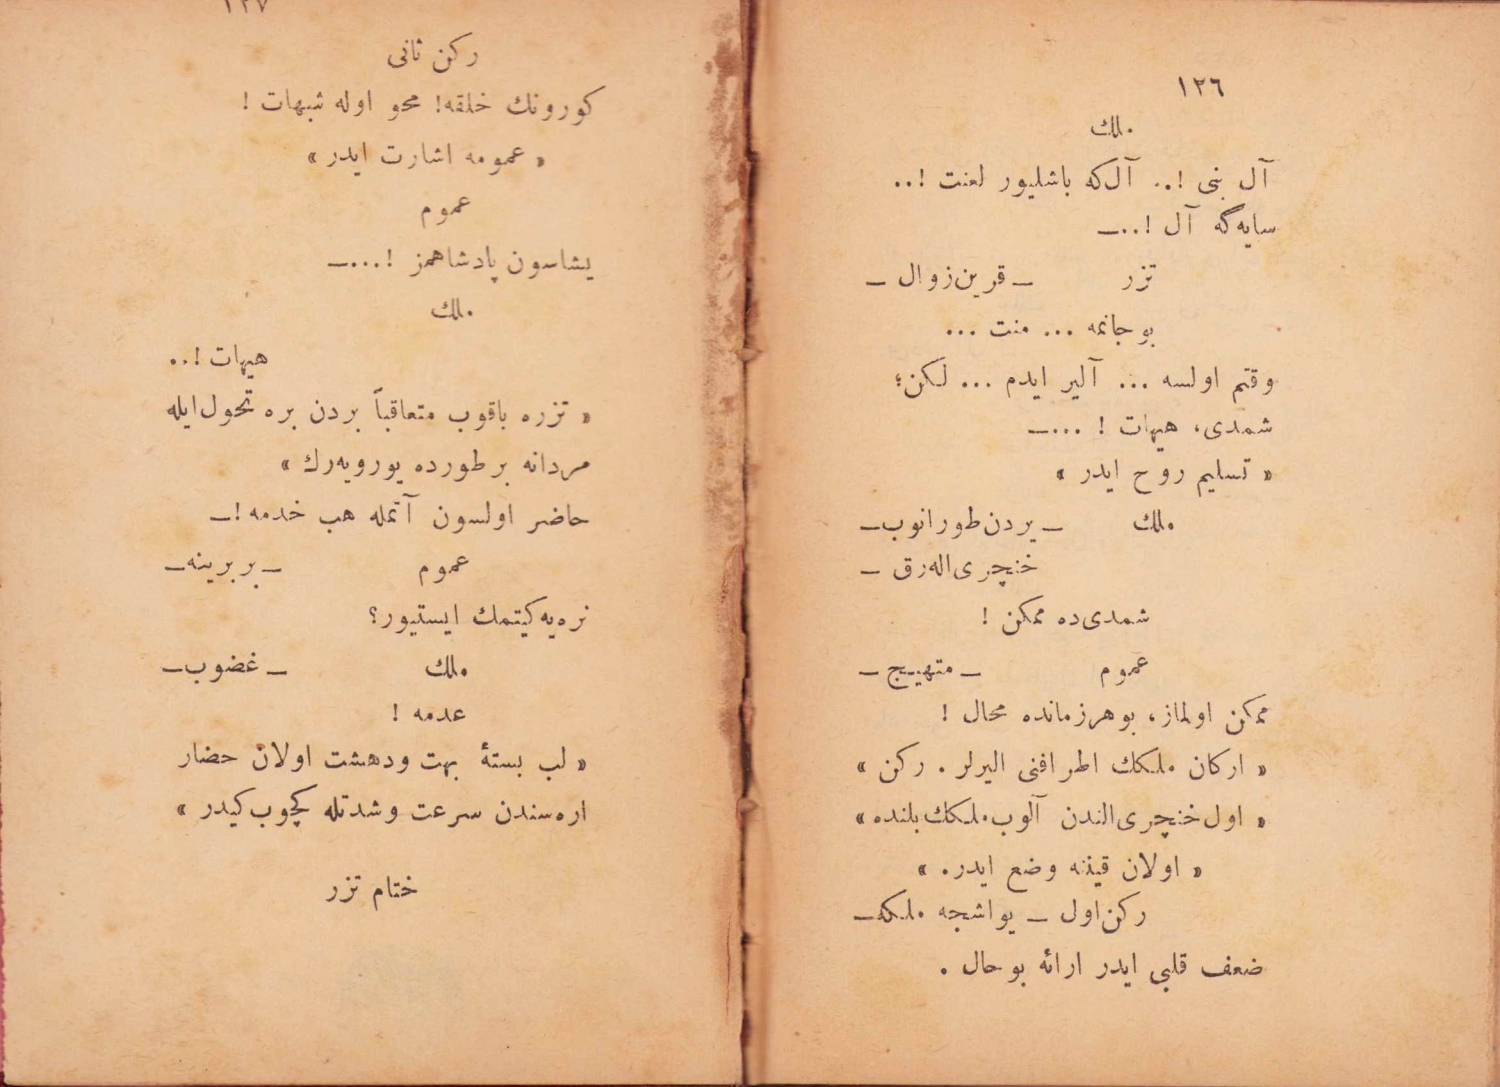 ١٢٦
ملك
آل بنی !.. آل‌که باشلیور لعنت !..
سایه‌گه آل !..ــ
تزر ــ قرین‌زوال ــ
بوجانمه ... منت ...
وقتم اولسه ... آلیر ایدم ... لکن؛
شمدی، هیهات ! ...ــ
« تسلیم روح ایدر »
ملك ــ یردن‌طورانوب ــ
خنچری‌اله‌رق ــ
شمدی‌ده ممکن !
عموم ــ متهییج ــ
ممکن اولماز، بوهرزمانده محال !
« ارکان ملکك اطرافنی الیرلر . رکن »
« اول‌خنچری‌الندن آلوب‌ملکك‌بلنده »
« اولان قیننه وضع ایدر. »
رکن‌اول ــ یواشجه ملکه ــ
ضعف قلبی ایدر ارائه بوحال .
١٢٧
رکن ثانی
کورونك خلقه! محو اوله شبهات !
« عمومه اشارت ایدر »
عموم
یشاسون پادشاهمز !...ــ
ملك
هیهات !..
« تزره باقوب متعاقباً بردن بره تحول‌ایله
مردانه برطورده یورویه‌رك »
حاضر اولسون آتمله هب خدمه !ــ
عموم ــ بربرینه ــ
نره‌یه‌کیتمك ایستیور؟
ملك ــ غضوب ــ
عدمه !
« لب بستهٔ بهت ودهشت اولان حضار
اره‌سندن سرعت وشدتله کچوب‌کیدر »
ختام تزر